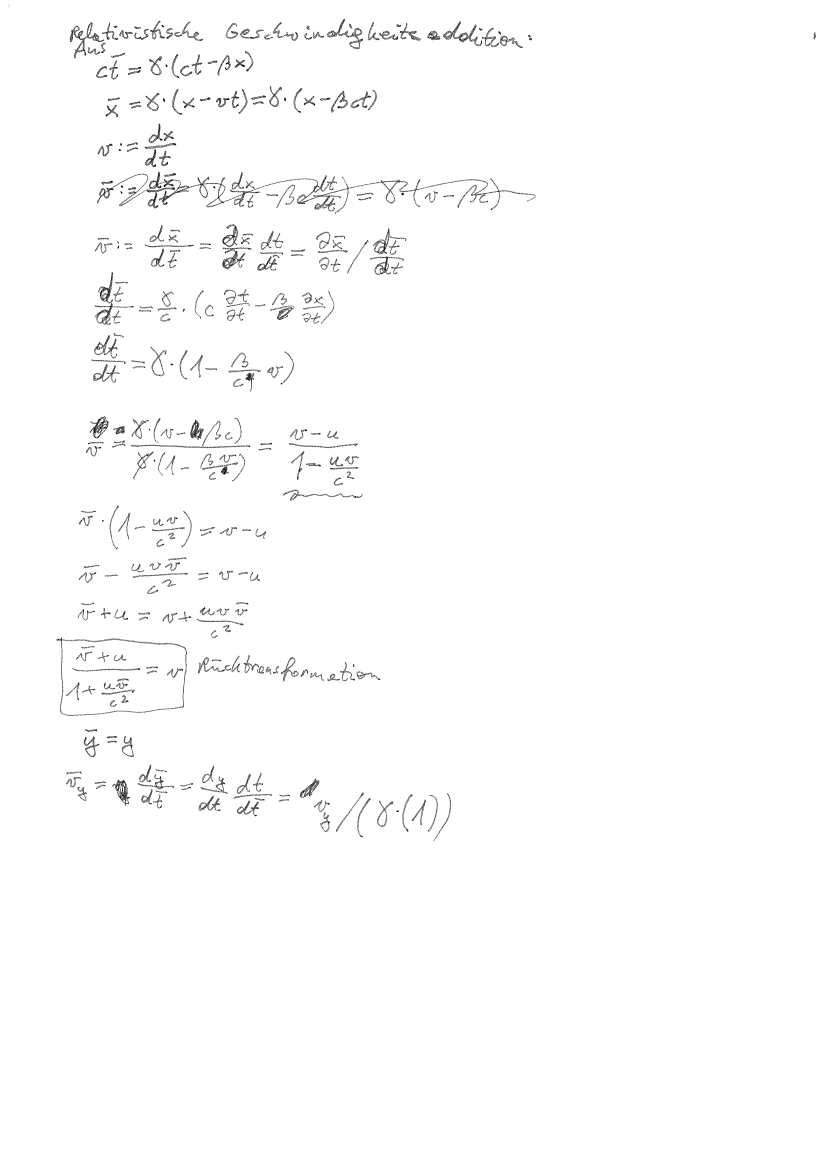 Relativistische Geschwindigkeitsaddition:
Aus
ct̄ = γ·(ct−βx)
x̄ = γ·(x−vt) = γ·(x−βct)
v := dx/dt
v̄ := dx̄/dt = γ·(dx/dt − βc dt/dt) = γ·(v−βc)
v̄ := dx̄/dt̄ = ∂x̄/∂t dt/dt̄ = ∂x̄/∂t / dt̄/dt
dt̄/dt = γ/c · (c ∂t/∂t − β ∂x/∂t)
dt̄/dt = γ·(1 − β/c v)
v̄ = γ·(v−βc)/γ·(1 − βv/c) = v−u/1 − uv/c²
v̄·(1 − uv/c²) = v−u
v̄ − uvv̄/c² = v−u
v̄+u = v + uvv̄/c²
v̄+u/1 + uv̄/c² = v Rücktransformation
ȳ = y
v̄_y = dȳ/dt̄ = dy/dt dt/dt̄ = v_y/(γ·(1))